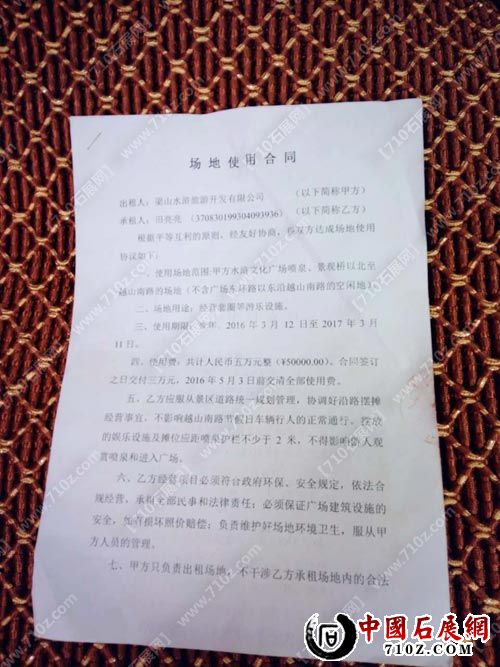 场地使用合同
出租人：梁山水浒旅游开发有限公司 （以下简称甲方）
承租人：田亮亮（370830199304093936）（以下简称乙方）
根据平等互利的原则，经友好协商，
双方达成场地使用
协议如下：
使用场地范围：甲方水浒文化广场喷泉、景观桥以北至
越山南路的场地（不含广场东环路以东沿越山南路的空闲地）
二、场地用途：经营套圈等游乐设施。
三、使用期限：
2016 年 3 月 12 日至 2017 年 3 月
11 日。
四、使用费：共计人民币五万元整（¥50000.00）、合同签订
之日交付三万元，2016 年 5 月 3 日前交清全部使用费。
五、乙方应服从景区道路统一规划管理，协调好沿路摆摊
经营事宜，不影响越山南路节假日车辆行人的正常通行。摆放
的娱乐设施及摊位应距喷泉护栏不少于 2 米，不得影响游人观
赏喷泉和进入广场。
六、乙方经营项目必须符合政府环保、安全规定，依法合
规经营，承担全部民事和法律责任；必须保证广场建筑设施的
安全，如有损坏照价赔偿；负责维护好场地环境卫生，服从甲
方人员的管理。
七、甲方只负责出租场地，不干涉乙方承租场地内的合法
【710石展网】
www.710z.com
中國石展網
710z.com